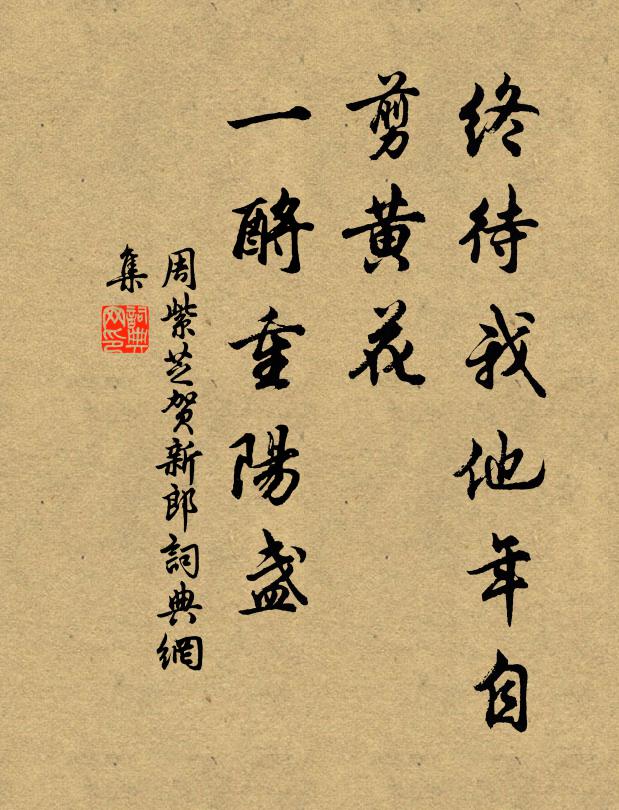 終待我他年自
剪黄花
一酹重陽盞
周紫芝贺新郎詞典網
集
詞典
网印